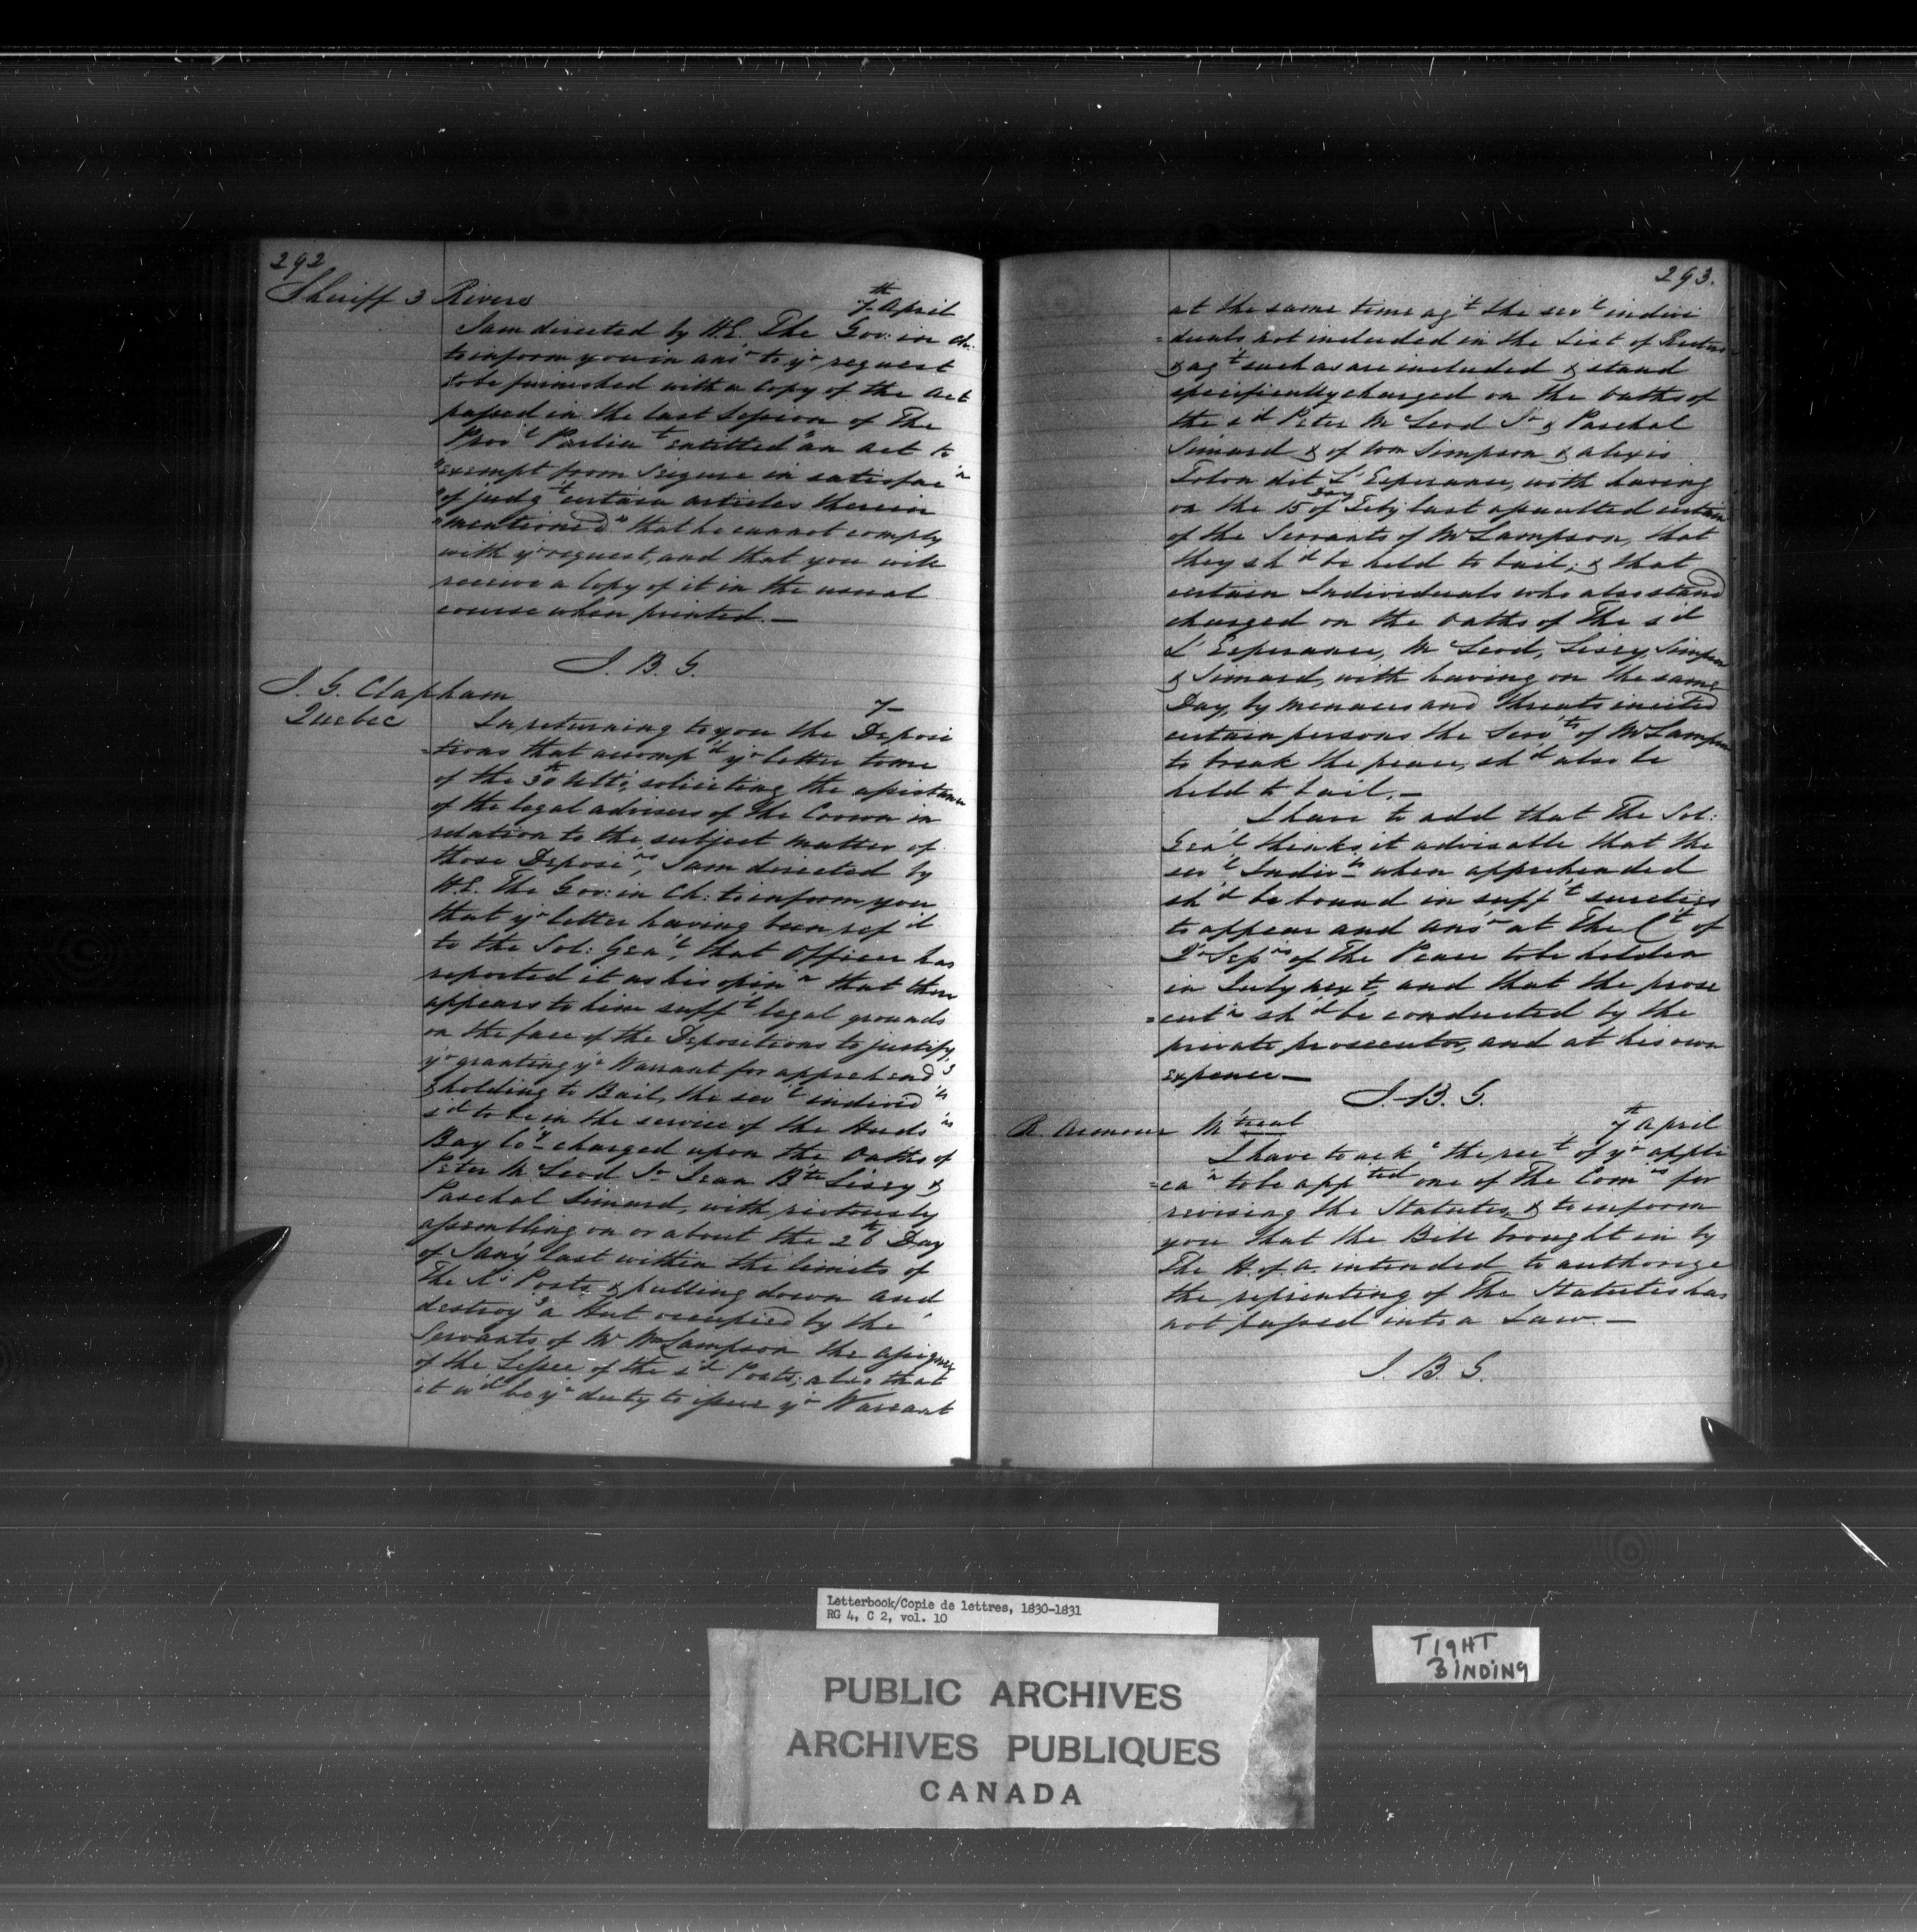 292
Sheriff 3 Rivers
7th April
I am directed by H.E. The Gov: in Ch:
to inform you in ansr to yr request
to be furnished with a Copy of the Act
passed in the last Session of The
Provl Parliat entitled "an Act to
"exempt from Seizure in satisfacn
"of judgt certain articles therein
"mentioned" that he cannot comply
with yr request, and that you will
receive a Copy of it in the usual
course when printed.—
J. B. G.
J. G. Clapham
Quebec
7—
In returning to you the Deposi
=tions that accompd yr letter to me
of the 30th Ulto; soliciting the assistance
of the legal advisers of the Crown in
relation to the subject matter of
those Deposins, I am directed by
H.E. The Gov: in Ch: to inform you
that yr letter having been refd
to the Sol: Genl, that Officer has
reported it as his opinn that there
appears to him sufft legal grounds
on the face of the Depositions to justify
yr granting yr Warrant for apprehendg
& holding to Bail, the sevl individls
sd to be in the service of the Hudsns
Bay Coy charged upon the Oaths of
Peter McLeod Jr Jean Bte Lissy &
Paschal Simard, with riotously
assembling on or about the 26th Day
of Jany last within the limits of
The Ks Posts & pulling down and
destroyg a Hut occupied by the
Servants of Mr Wm Lampson the assignee
of the Lessee of the sd Posts; also that
it wd be yr duty to issue yr Warrant
293.
at the same time agt the sevl indivi
=duals not included in the List of
& agt such as are included & stand
specifically charged on the Oaths of
the sd Peter McLeod Jr & Paschal
Simard & of Wm Simpson & Alexis
dit L'Esperance, with having
on the 15 Day of Feby last assaulted certain
of the Servants of Mr Lampson, that
they shd be held to bail; & that
certain Individuals who also stand
charged on the Oaths of The sd
L'Esperance, McLeod, Lissy, Simpson
& Simard, with having on the same
Day, by menaces and threats incited
certain persons the Servts of Mr Lampson
to break the peace, shd also be
held to bail.—
I have to add that The Sol:
Genl thinks it advisable that the
sevl Indivls when apprehended
shd be bound in sufft sureties
to appear and ansr at the Ct of
Qr Sessns of The Peace to be holden
in July next, and that the prose
=cutn shd be conducted by the
private prosecutor, and at his own
expence—
J. B. G.
R. Armour Mtreal
7th April
I have to acke the rect of yr appli
=can to be appted one of The Comrs for
revising the Statutes, & to inform
you that the Bill brought in by
The H. of A. intended to authorize
the reprinting of The Statutes has
not passed into a Law.—
J. B. G.
Letterbook/Copie de lettres, 1830-1831
RG 4, C 2, vol. 10
TIGHT
BINDING
PUBLIC ARCHIVES
ARCHIVES PUBLIQUES
CANADA